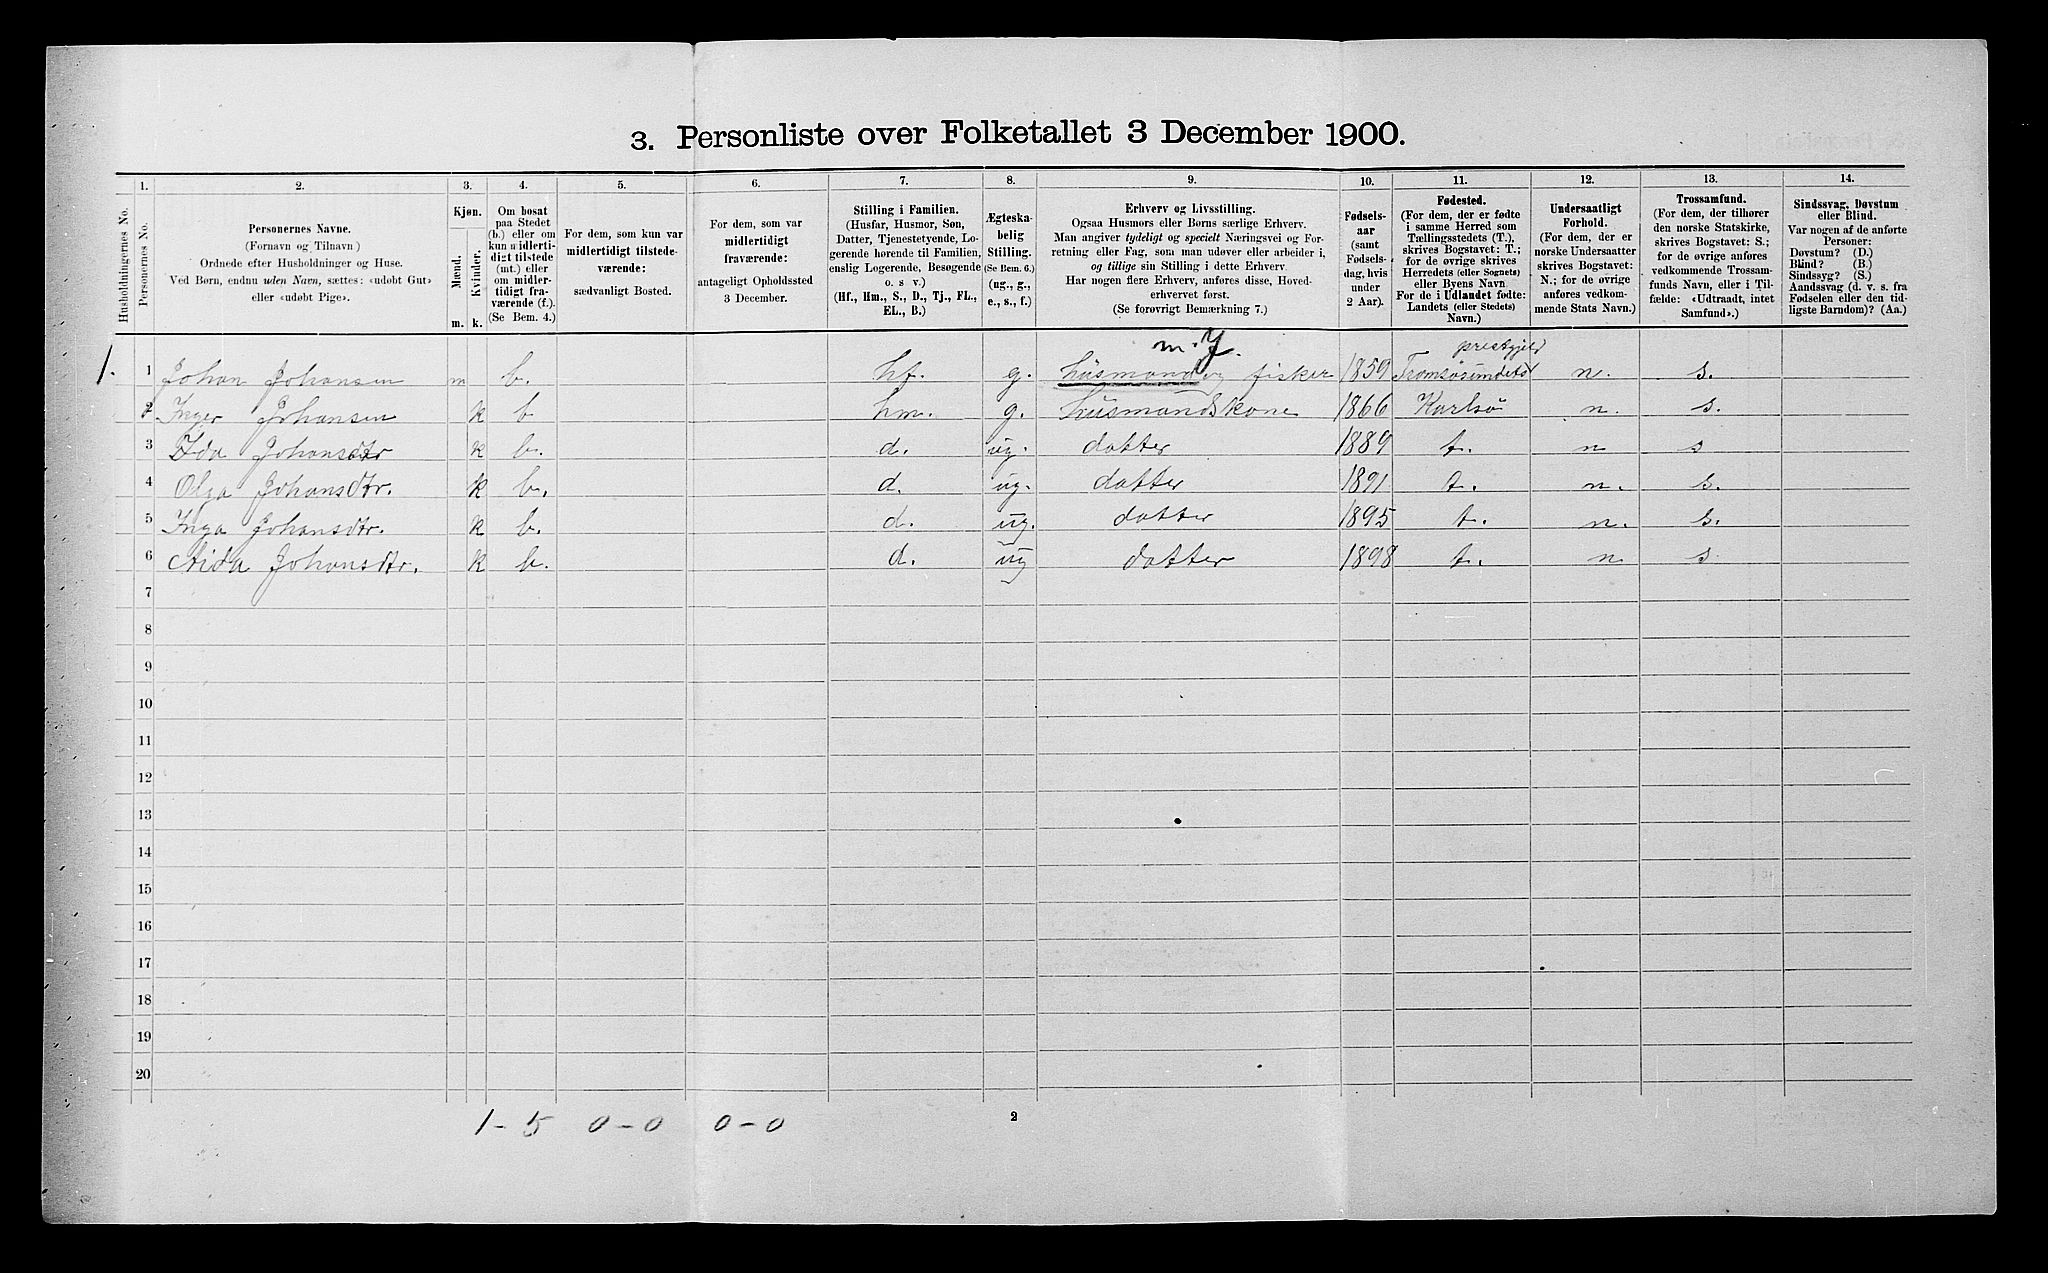 3. Personliste over Folketallet 3 December 1900.
1. 2. 3. 4. 5. 6. 7. 8. 9. 10. 11. 12. 13. 14.
Husholdningernes No.
Personernes No.
Personernes Navne.
(Fornavn og Tilnavn)
Ordnede efter Husholdninger og Huse.
Ved Børn, endnu uden Navn, sættes: «udøbt Gut»
eller «udøbt Pige».
Kjøn.
Mænd.
Kvinder.
m. k.
Om bosat
paa Stedet
(b.) eller om
kun midlerti-
digt tilstede
(mt.) eller
om midler-
tidigt fra-
værende (f.).
(Se Bem. 4.)
For dem, som kun var
midlertidigt tilstede-
værende:
sædvanligt Bosted.
For dem, som var
midlertidigt
fraværende:
antageligt Opholdssted
3 December.
Stilling i Familien.
(Husfar, Husmor, Søn,
Datter, Tjenestetyende, Lo-
gerende hørende til Familien,
enslig Logerende, Besøgende
o. s. v.)
(Hf., Hm., S., D., Tj., FL.,
EL., B.)
Ægteska-
belig
Stilling.
(Se Bem. 6.)
(ug., g.,
e., s., f.)
Erhverv og Livsstilling.
Ogsaa Husmors eller Børns særlige Erhverv.
Man angiver tydeligt og specielt Næringsvei og For-
retning eller Fag, som man udøver eller arbeider i,
og tillige sin Stilling i dette Erhverv.
Har nogen flere Erhverv, anføres disse, Hoved-
erhvervet først.
(Se forøvrigt Bemærkning 7.)
Fødsels-
aar
(samt
Fødsels-
dag, hvis
under
2 Aar).
Fødested.
(For dem, der er fødte
i samme Herred som
Tællingsstedets (T.),
skrives Bogstavet: T.;
for de øvrige skrives
Herredets (eller Sognets)
eller Byens Navn.
For de i Udlandet fødte:
Landets (eller Stedets)
Navn.)
Undersaatligt
Forhold.
(For dem, der er
norske Undersaatter
skrives Bogstavet:
N.; for de øvrige
anføres vedkom-
mende Stats Navn.)
Trossamfund.
(For dem, der tilhører
den norske Statskirke,
skrives Bogstavet: S.;
for de øvrige anføres
vedkommende Trossam-
funds Navn, eller i Til-
fælde: «Udtraadt, intet
Samfund».)
Sindssvag, Døvstum
eller Blind.
Var nogen af de anførte
Personer:
Døvstum? (D.)
Blind? (B.)
Sindssyg? (S.)
Aandssvag (d. v. s. fra
Fødselen eller den tid-
ligste Barndom)? (Aa.)
m. J. prestgjeld
1. 1 Johan Johansen m b. hf. g. husmand og fisker 1859 Tromsøsundets n. s.
2 Inger Johansen k b hm. g. husmandskone 1866 Karlsø n. s.
3 Ida Johansdtr k b. d. ug. datter 1889 t. n s
4 Olga Johansdtr. k b. d. ug. datter 1891 t. n. s.
5 Inga Johansdtr. k b. d. ug. datter 1895 t. n. s.
6 Aida Johansdtr. k b. d. ug datter 1898 t. n s
7
8
9
10
11
12
13
14
15
16
17
18
19
20
1-5 0-0 0-0 2